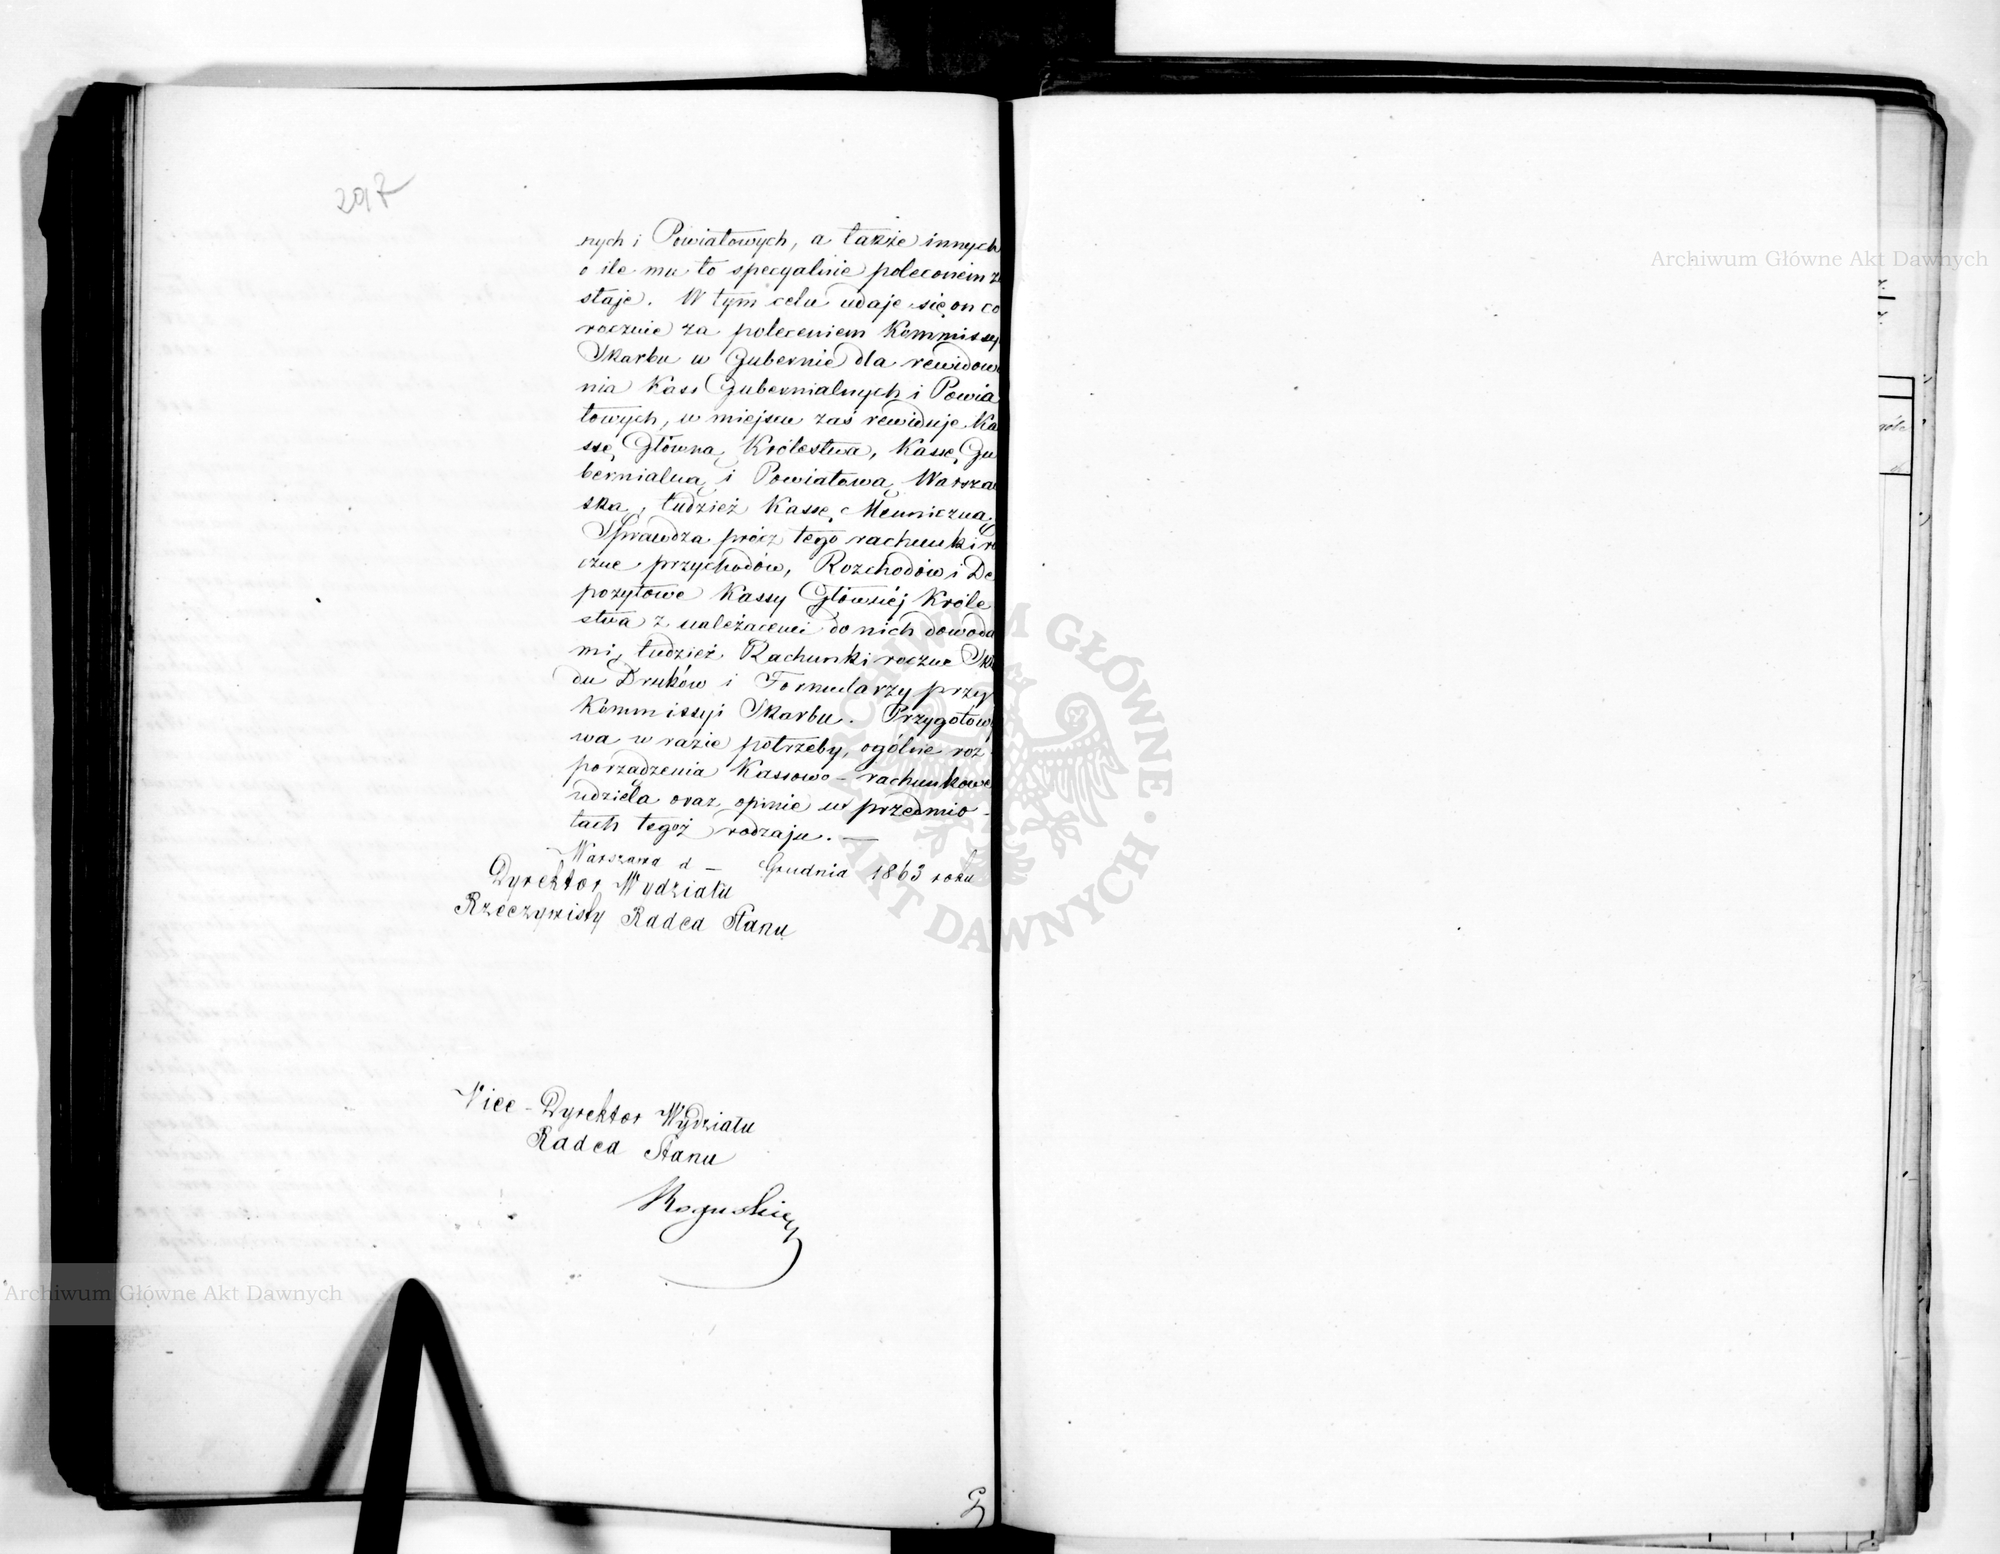 2017
nych i Powiatowych, a także innych
o ile mu to specyalnie poleconem z
staje. W tym celu udaje się on co
rocznie za poleceniem Kommissyi
Skarbu w Gubernie dla rewidowa
nia Kass Gubernialnych i Powia
towych, w miejscu zaś rewiduje Ka
ssę Główną Królestwa, Kassę Gu
bernialną i Powiatową Warszaw
ską, tudzież Kassę Menniczną.
Sprawdza prócz tego rachunki ro
czne przychodów, Rozchodów i De
pozytowe Kassy Głównéj Króle
stwa z należącemi do nich dowoda
mi, tudzież Rachunki roczne Skła
du Druków i Formularzy przy
Kommissyi Skarbu. Przygotowy
wa w razie potrzeby, ogólne roz-
porządzenia Kassowo-rachunkowe
udziela oraz opinie w przedmio-
tach tegoż rodzaju.—
Warszawa d — Grudnia 1863 roku
Dyrektor Wydziału
Rzeczywisty Radca Stanu
Vice-Dyrektor Wydziału
Radca Stanu
Roguski
Archiwum Główne Akt Dawnych
Archiwum Główne Akt Dawnych
ARCHIWUM GŁÓWNE AKT DAWNYCH